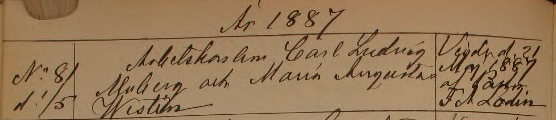 År 1887
Arbetskarlen Carl Ludvig
N:o 8/ Moberg och Maria Augusta
d. 1/5 Westin
Vigde d. 21
Maj 1887
af
F A Lodin